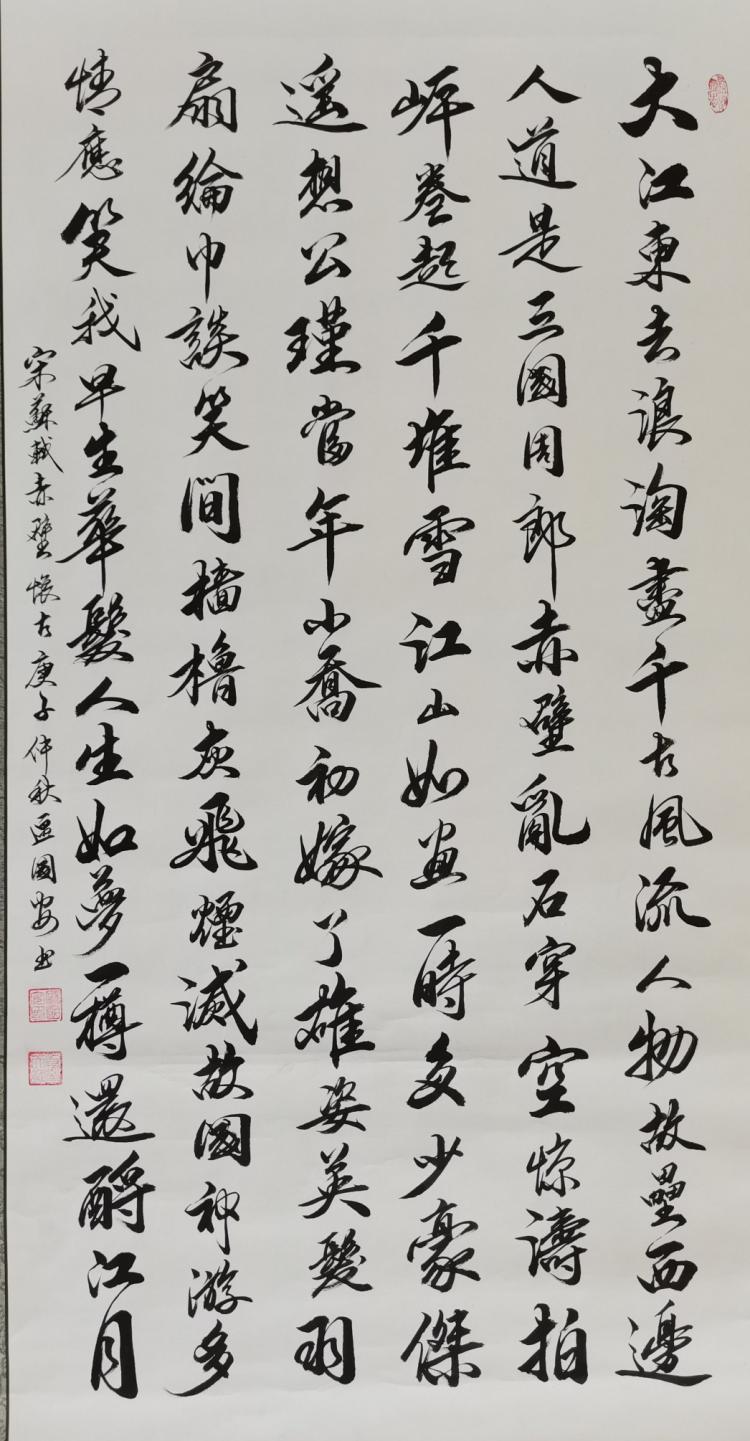 大江東去浪淘盡千古風流人物故壘西邊
人道是三國周郎赤壁亂石穿空惊濤拍
岸卷起千堆雪江山如画一時多少豪傑
遥想公瑾當年小喬初嫁了雄姿英髮羽
扇綸巾談笑間檣櫓灰飛煙滅故國神游多
情應笑我早生華髮人生如夢一樽還酹江月
宋蘇軾赤壁懷古庚子仲秋區國安书